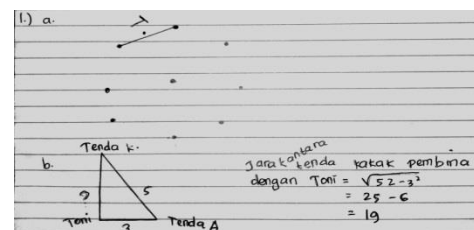 1.) a.
b.
Tenda k.
?
5
Toni
3
Tenda A
Jarak antara
tenda kakak pembina
dengan Toni = √52-3²
= 25 - 6
= 19